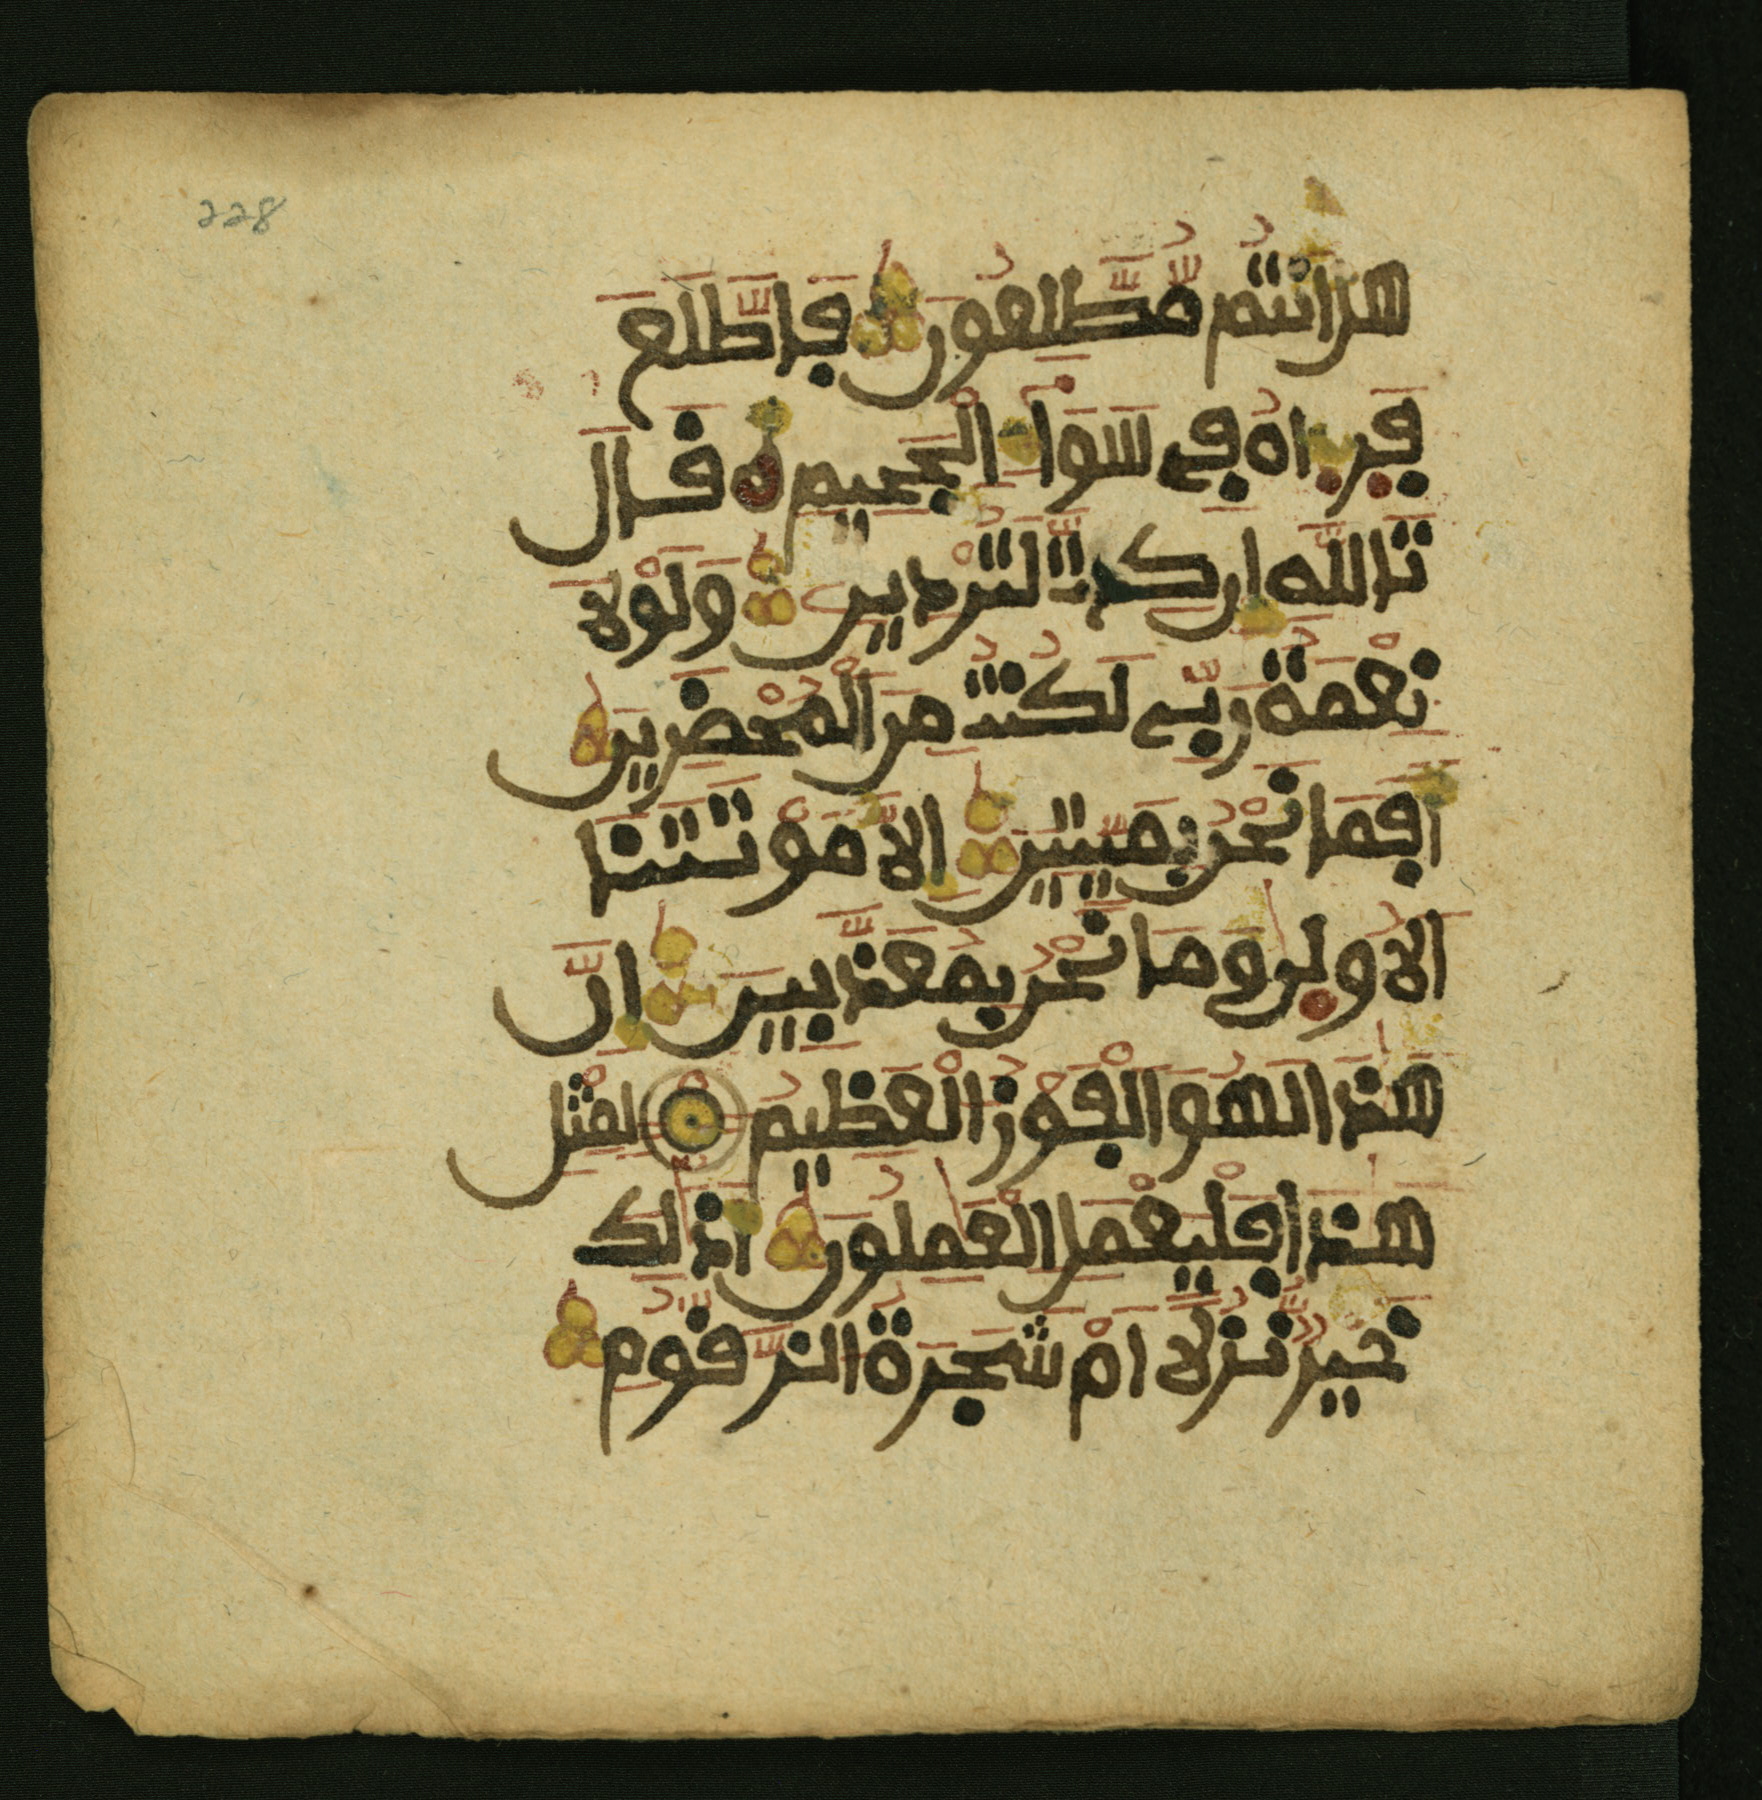 228
هل انتم مُّطَّلِعُونَ فَاطَّلَعَ
فَرءاهُ فِے سَوَاءِ الْجَحِيمِ قَالَ
تَاللَّهِ إِن كِدتَّ لَتُرْدِينِ وَلَوْلَا
نِعْمَةُ رَبِّے لَكُنتُ مِنَ الْمُحْضَرِينَ
أَفَمَا نَحْنُ بِمَيِّتِينَ إِلَّا مَوْتَتَنَا
الُاولىٰ وَمَا نَحْنُ بِمُعَذَّبِينَ إِنَّ
هَٰذَا لَهُوَ الْفَوْزُ الْعَظِيمُ لِمِثْلِ
هَٰذَا فَلْيَعْمَلِ الْعَٰمِلُونَ أَذَٰلِكَ
خَيْرٌ نُّزُلًا اَمْ شَجَرَةُ الزَّقُّومِ